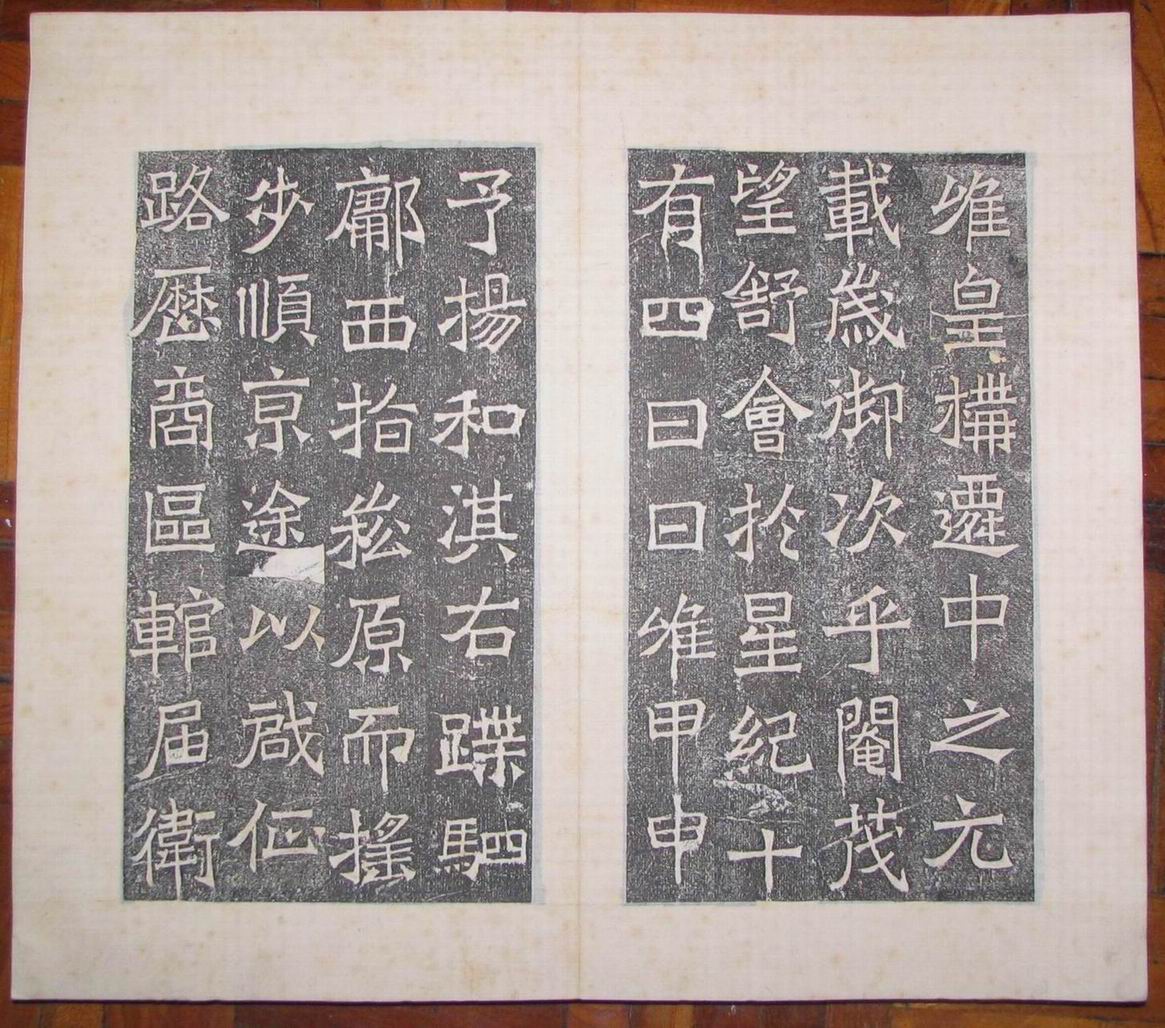 唯皇搆遷中之元
載歲御次乎閹茂
望舒會扵星紀十
有四日日唯甲申
予揚和淇右蹀駟
鄘西指崧原而搖
步順京途以啟征
路歷商區輨屆衛